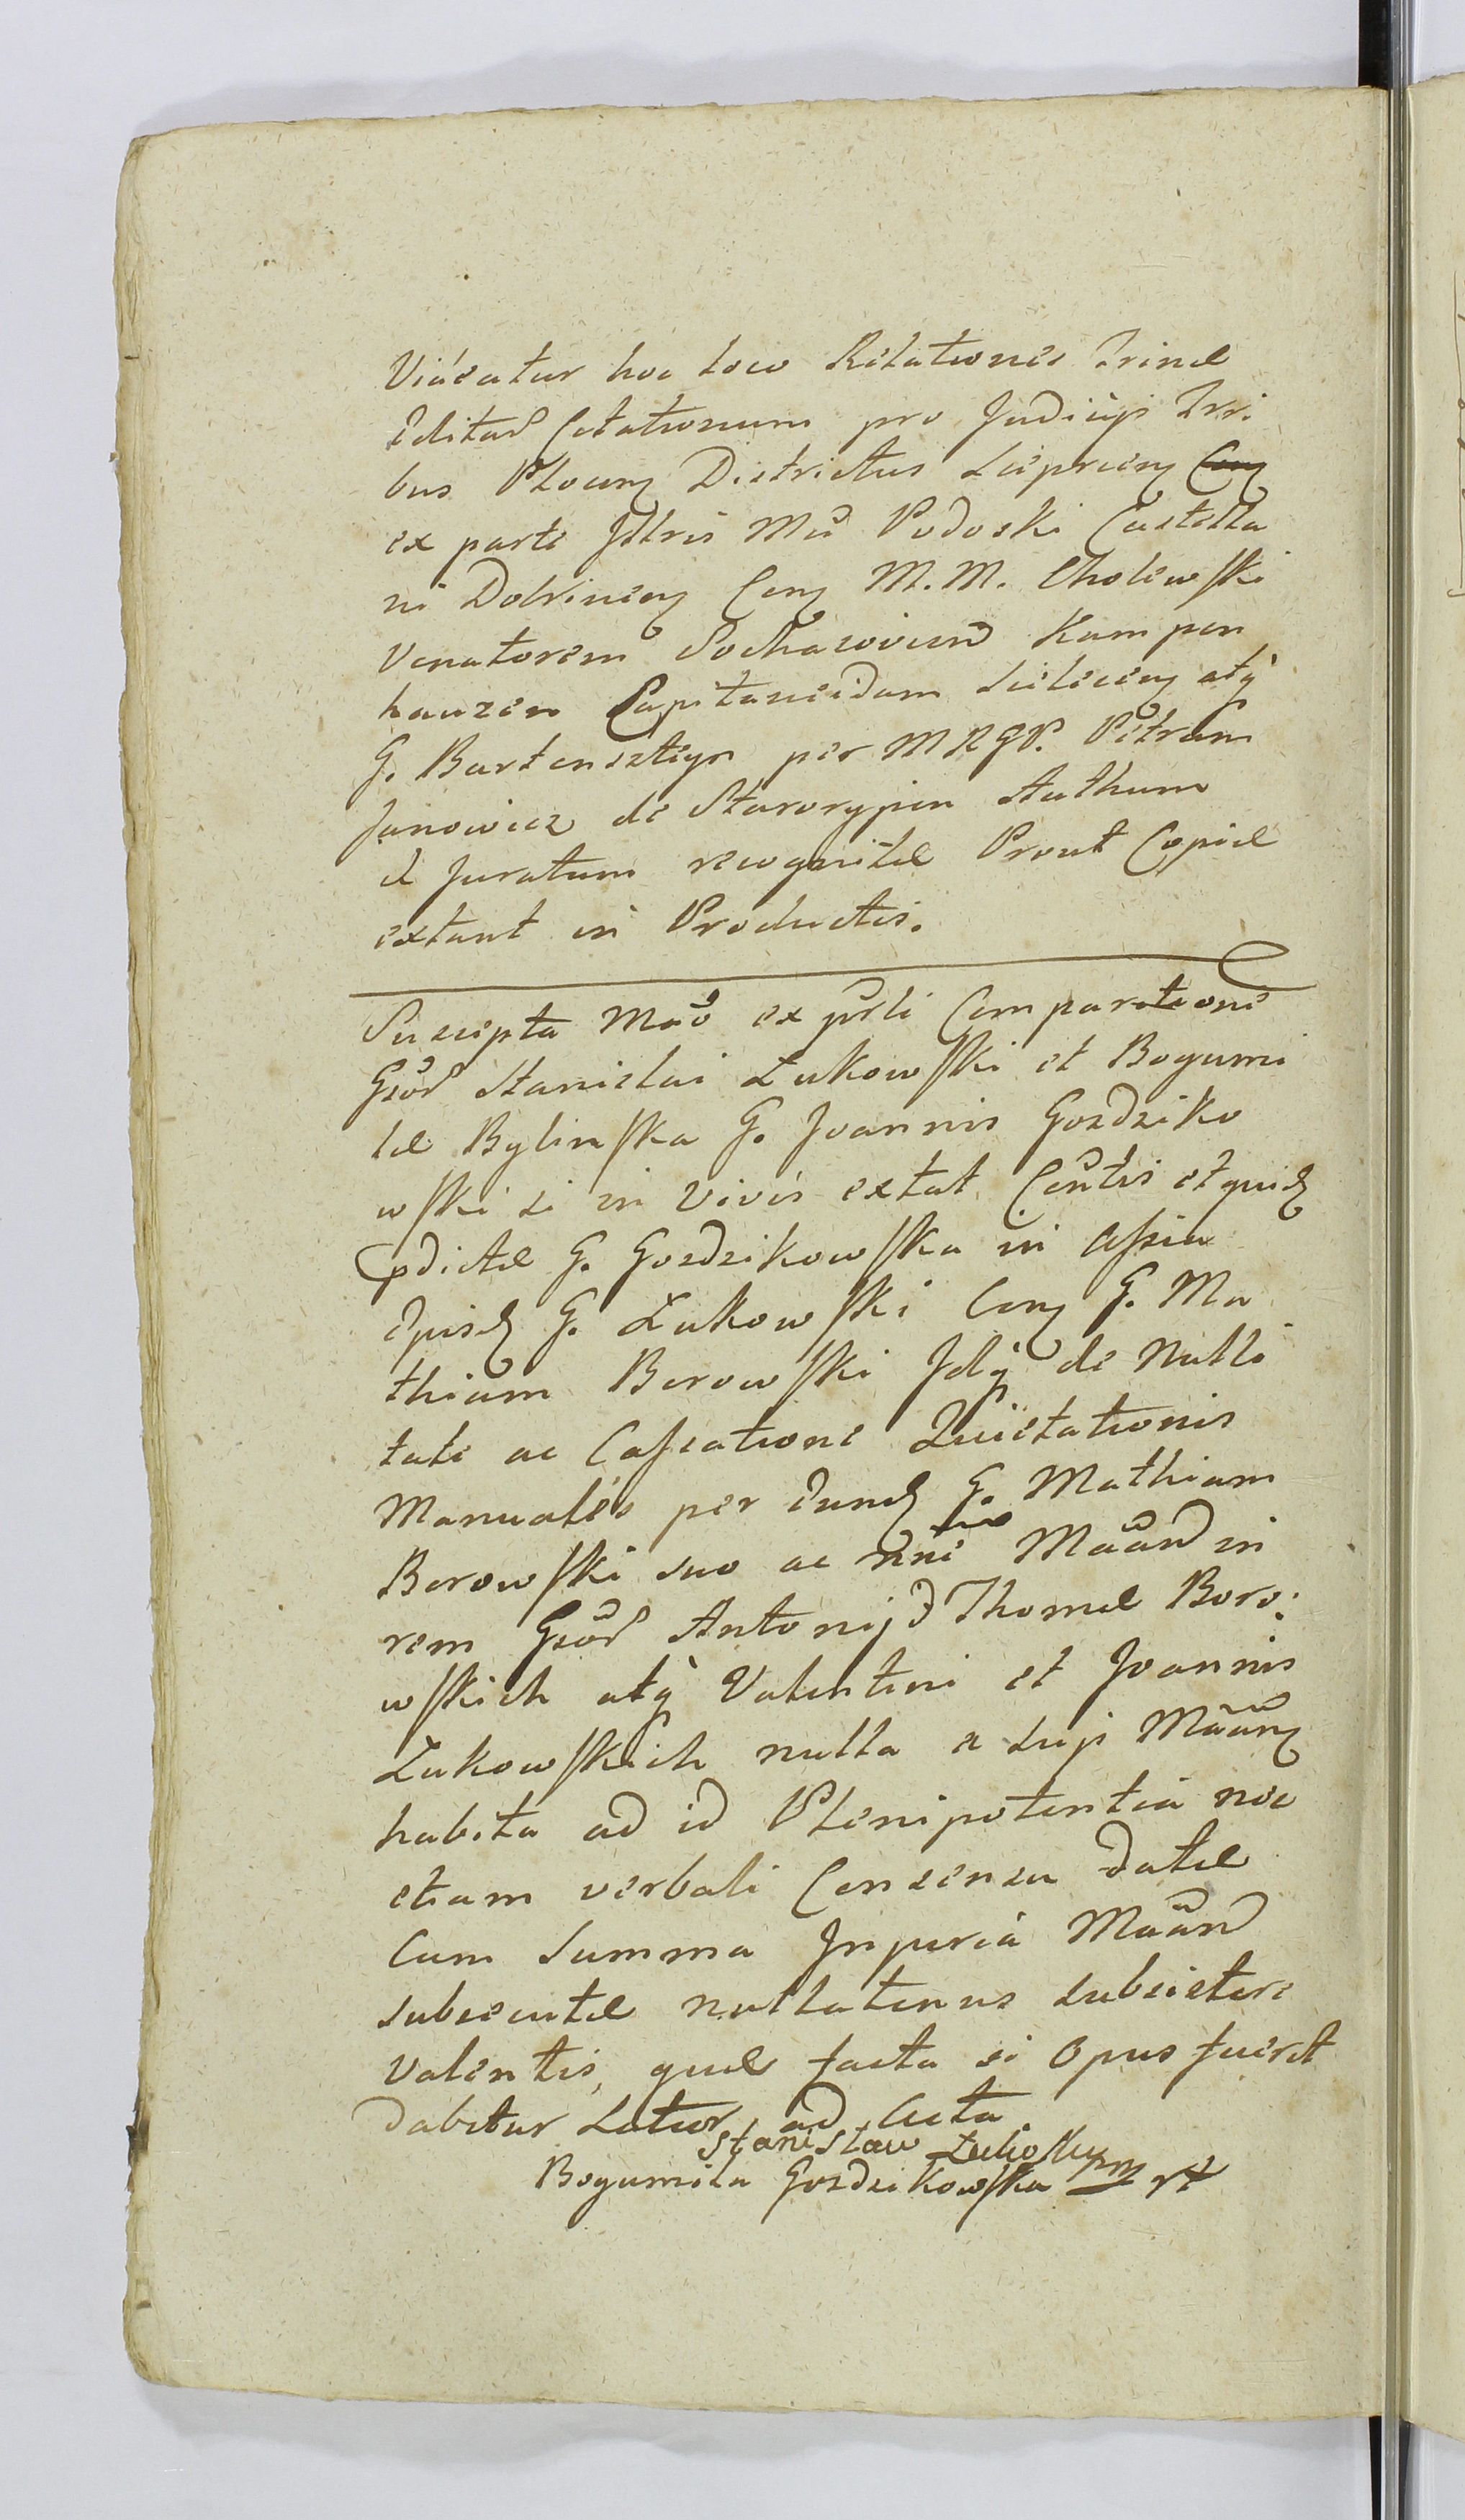 Videatur hoc loco Relationes Trinae
Editar Citationum pro Judicijs Trri
bus Plocen Districtus Lieprcen Con
ex parte Jllris Mci Podoski Castella
ni Dobrinen Con M. M. Cholewski
Venatorem Sochacovien Kampen
hauzen Capitaneidam Sielecen atq
G. Bartensztejn per MRGP. Petrum
Janowicz de Starorypin Authum
et Juratum recognitae Prout Copiae
extant in Productis.
Suscepta Mao ex prsti Comparitione
Gsor Stanislai Zukowski et Bogumi
lae Bylinska G. Joannis Gozdziko
wski si in vivis extat Contis et quid
pdictae G. Gozdzikowska in assia
Ejusd G. Zukowski Con G. Ma
thiam Borowski Jdq de Nulli
tate ac Cassatione Quietationis
Manualis per Eund G. Mathiam
Borowski suo ac nne Maan in
rem Gsor Antonij & Thomae Boro:
wskich atq Valentini et Joannis
Zukowskich nulla a suis Maan
habita ad id Plenipotentia nec
etiam verbali Consensu datae
Cum Summa Injuria Maan
subsecutae nullatenus subsistere
valentis, quae facta si Opus fuerit
dabitur Latior ad Acta
Stanislaw
Bogumila Gozdzikowska